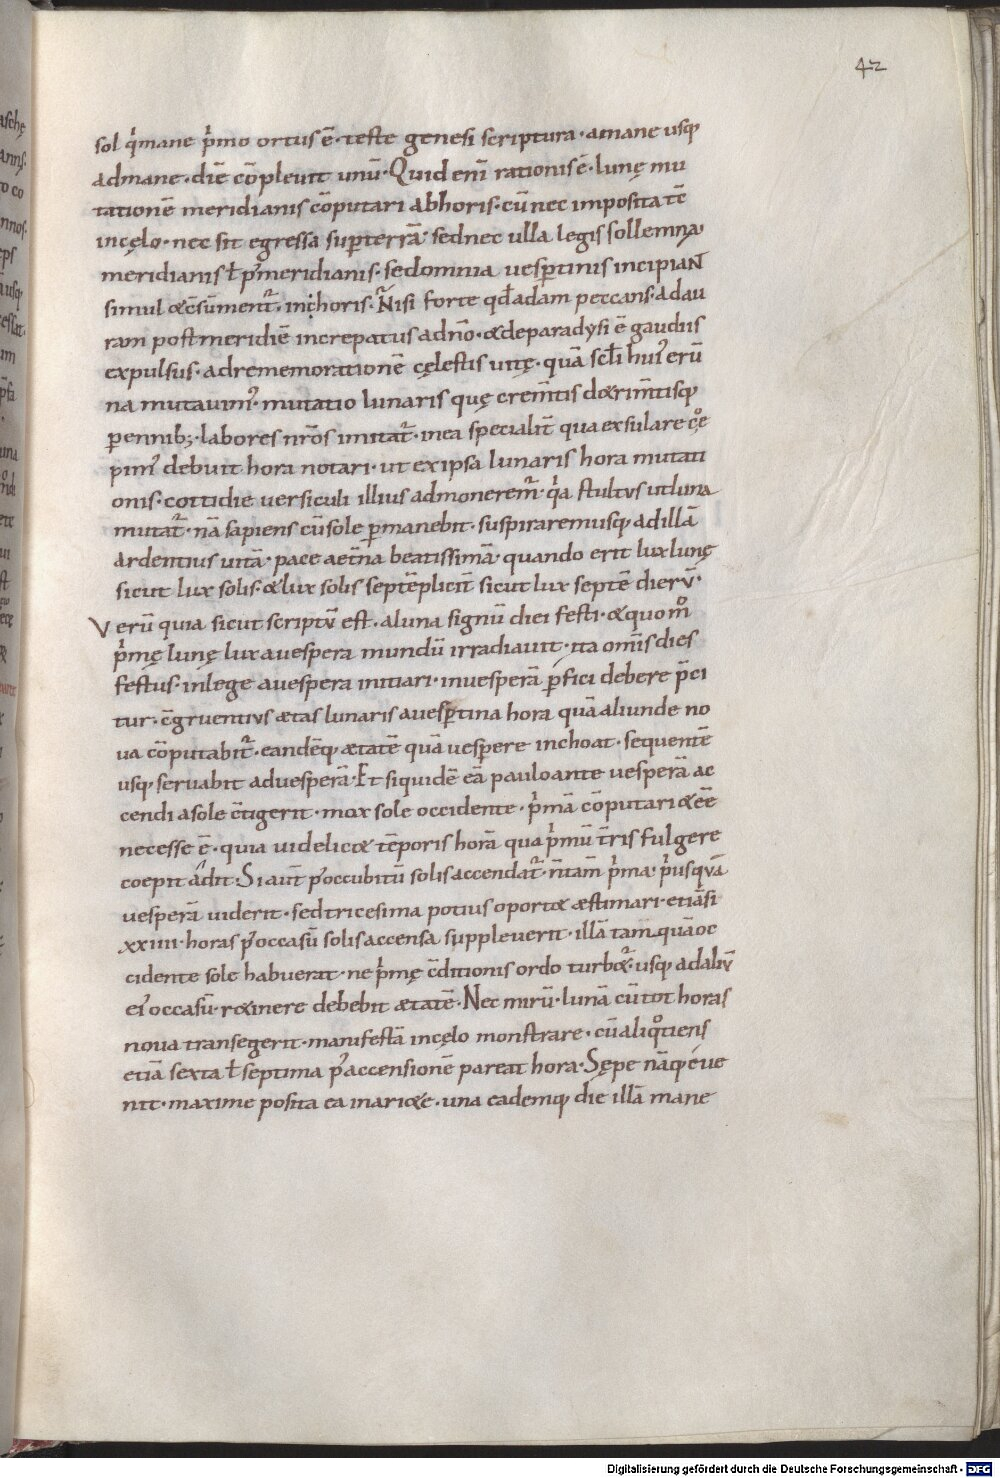 42
sol q̍mane p̍mo ortus ē · teste genesi scriptura · amane usq;
admane · diē cōpleuit unū · Quid eni̅ rationis ē · lunę mu
tationē meridianis cōputari abhoris · cū nec imposita tē
incęlo · nec sit egressa sup̱terrā · sed nec ulla legis sollemna ·
meridianis ł p̃meridianis · sedomnia uesp̱tinis incipiant
simul &c̄sūment᷑ · inc̄horis · Nisi forte qd̄ adam peccans · ad au
ram postmeridiē increpatus adn̄o · &deparadysi ē gaudiis
expulsus · adrememorationē cęlestis uitę · quā scl̄i hui᷒ erū
na mutauim᷒ · mutatio lunaris quę crem̄tis d&rim̄tisq;
p̱ennib; · labores nr̄os imitat᷑ · inea specialit̄ qua exsulare cę
pim᷒ debuit hora notari · ut exipsa lunaris hora mutati
onis · cottidie uersiculi illius admoneremur᷑ · q̍a stultus utluna
mutat᷑ · nā sapiens cūsole p̱manebit · suspiraremusq; adillā
ardentius uitā · pace aet̄na beatissimā · quando erit lux lunę
sicut lux solis · & lux solis septēplicit̄ sicut lux septē dierū ·
Verū quia sicut scriptū est · aluna signū diei festi · &quom̊
p̍mę lunę lux auespera mundū irradiauit · ita om̄is dies
festus · inlege auespera initiari · inuesperā p̱fici debere p̄ci
tur · c̄gruentius ætas lunaris auesp̱tina hora quā aliunde no
ua cōputabit᷑ · eandēq; ætatē quā uesp̱ere inchoat · sequentē
usq; seruabit aduesperā · Et siquidē eā pauloante uesperā ac
cendi asole c̄tigerit · mox sole occidente · p̍mā cōputari &ēē
necesse ē · quia uidelic& tēporis horā qua p̍mū t̄ris fulgere
coepit adit · Si aut̄ p᷒occubitū solis accendat᷑ · n̄tam̄ p̍ma · p̍usquā
uesperā uiderit · sed tricesima potius oport& æstimari · etiāsi
xxiiii · horas p᷒occasū solis accensa suppleuerit · illā tam̄ quā oc
cidente sole habuerat · ne p̍mę c̄ditionis ordo turb&᷑ · usq; adaliū
ei᷒ occasū · r&inere debebit ætatē · Nec mirū · lunā cū tot horas
noua transegerit · manifestā incęlo monstrare · cū aliq̊tiens
etiā sexta ł septima p᷒accensionē pareat hora · Sępe nāq; eue
nit · maxime posita ea inari&e · una eademq; die illā mane
Digitalisierung gefördert durch die Deutsche Forschungsgemeinschaft - DFG